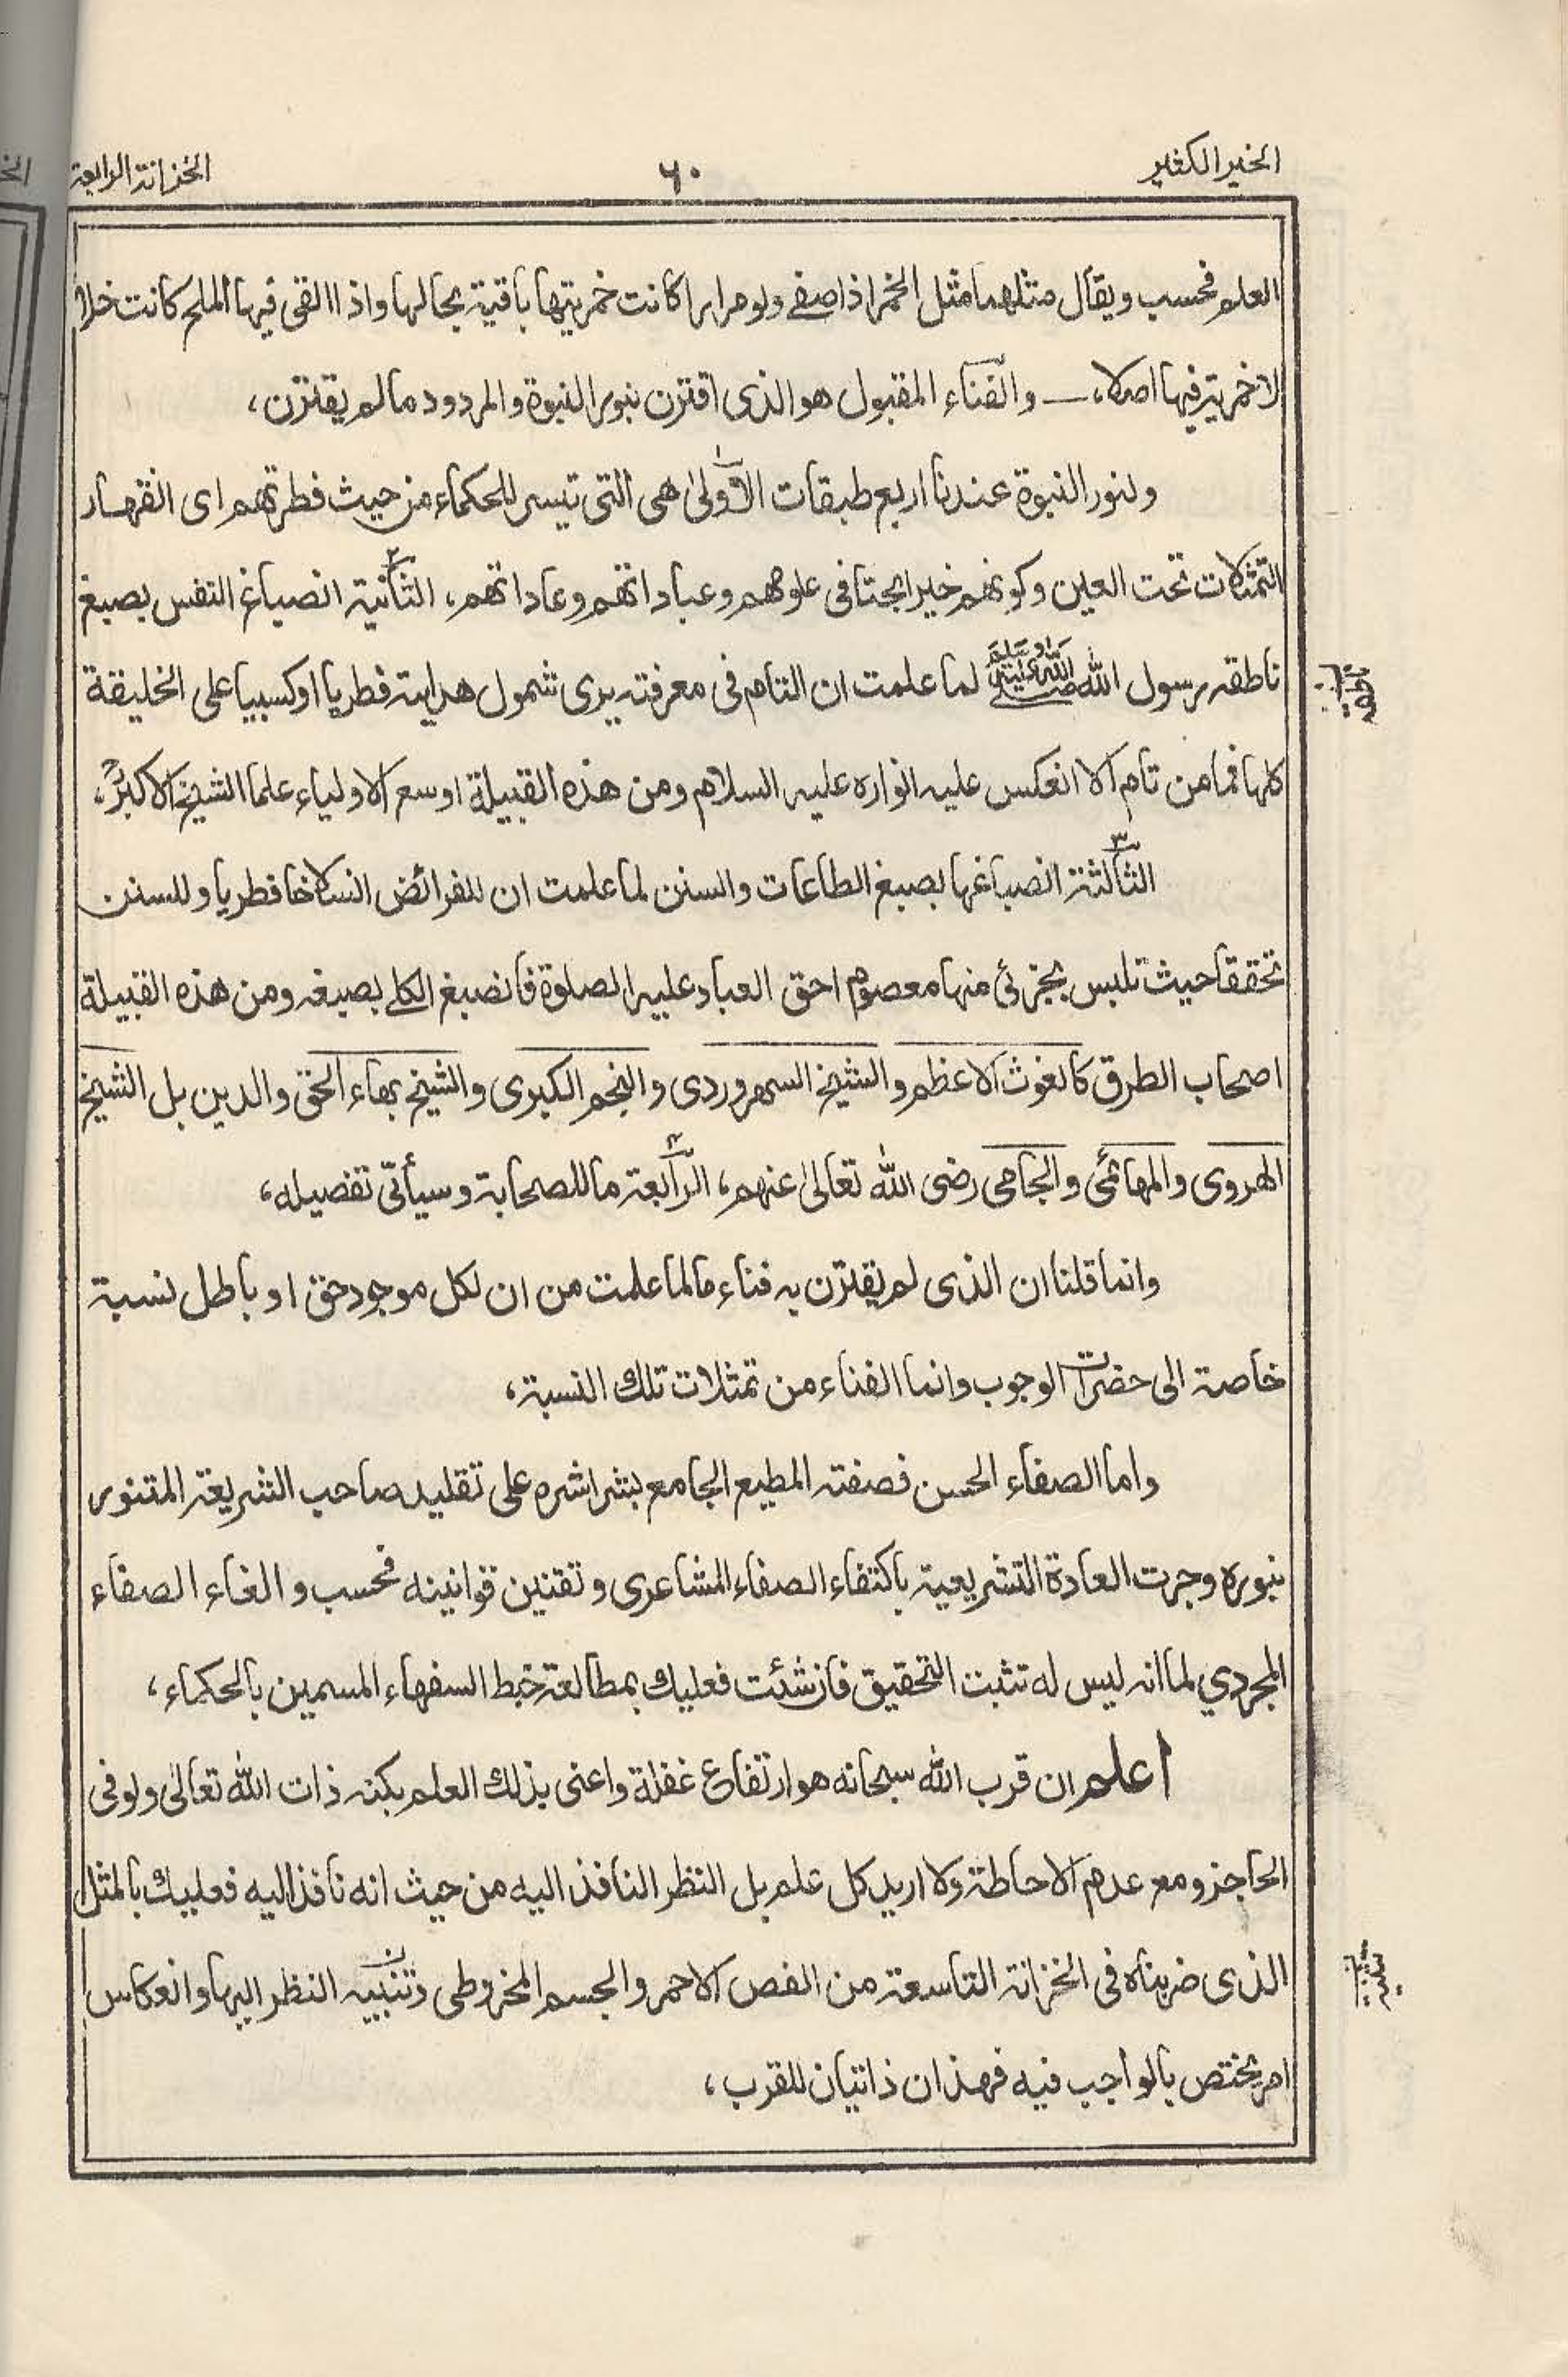 الخير الكثير ٦٠ الخزانة الرابعة
العلم فحسب ويقال مثلهما مثل الخمر اذا صفے ولو مرارا كانت خمريتها باقية بحالها واذا القى فيها الملح كانت خلا
لا خمرية فيها اصلا، ـــ والفناء المقبول هو الذى اقترن بنور النبوة والمردود ما لم يقترن،
ولنور النبوة عندنا اربع طبقات الاولىٰ هى التى تيسر للحكماء من حيث فطرتهم اى انقهار
التمثلات تحت العين وكونهم خيرا بحتا فى علومهم وعباداتهم وعاداتهم، الثانية انصباغ النفس بصبغ
ناطقه رسول الله صلى الله عليه وسلم لما علمت ان التام فى معرفته يرى شمول هدايته فطريا او كسبيا على الخليقة
كلها فما من تام الا انعكس عليه انواره عليه السلام ومن هذه القبيلة اوسع الاولياء علما الشيخ الاكبرؒ،
الثالثة انصباغها بصبغ الطاعات والسنن لما علمت ان للفرائض انسلاخا فطريا وللسنن
تحققا حيث تلبس بجزئ منها معصوم احق العباد عليه الصلوة فانصبغ الكلے بصبغه ومن هذه القبيلة
اصحاب الطرق كالغوث الاعظم والشيخ السهروردى والنجم الكبرى والشيخ بهاء الحق والدين بل الشيخ
الهروى والمهائمى والجامى رضى الله تعالىٰ عنهم، الرابعة ما للصحابة وسيأتى تفصيله،
وانما قلنا ان الذى لم يقترن به فناء ما لما علمت من ان لكل موجود حق او باطل نسبة
خاصة الى حضرات الوجوب وانما الفناء من تمثلات تلك النسبة،
واما الصفاء الحسن فصفته المطيع الجامع بشراشره على تقليد صاحب الشريعة المتنور
بنوره وجرت العادة التشريعية باكتفاء الصفاء المشاعرى وتقنين قوانينه فحسب والغاء الصفاء
المجردي لما انه ليس له تثبت التحقيق فان شئت فعليك بمطالعة خبط السفهاء المسمين بالحكماء،
اعلم ان قرب الله سبحانه هو ارتفاع غفلة واعنى بذلك العلم بكنه ذات الله تعالىٰ ولو فى
الحاجز ومع عدم الاحاطة ولا اريد كل علم بل النظر النافذ اليه من حيث انه نافذ اليه فعليك بالمثل
الذى ضربناه فى الخزانة التاسعة من الفص الاحمر والجسم المخروطى وتنبيه النظر اليها وانعكاس
امر يختص بالواجب فيه فهذان ذاتيان للقرب،